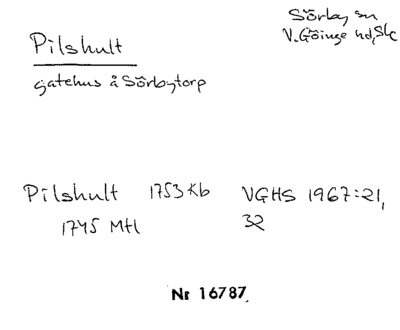 Sörby sn
V. Göinge hd, Sk
Pilshult
gatehus å Sörbytorp
Pilshult 1753 Kb VGHS 1967:21,
1745 Mtl 32
Nr 16787